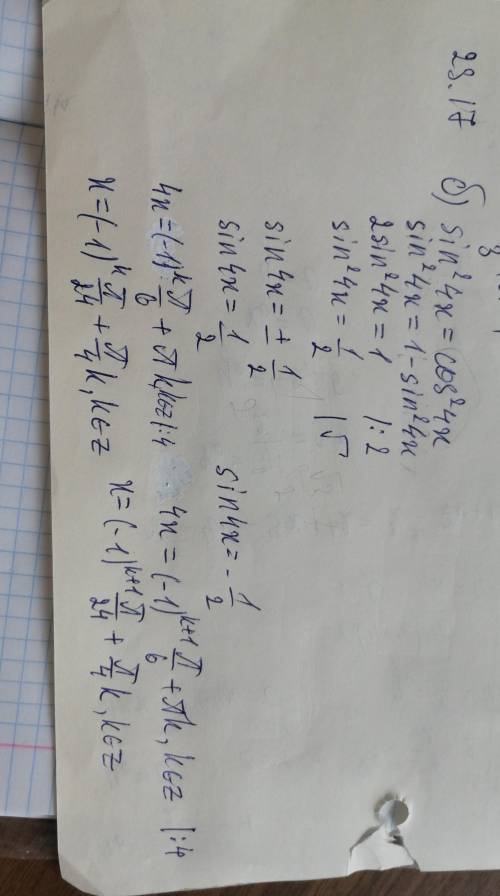 23.17 б) sin²4x = cos²4x
sin²4x = 1 - sin²4x
2sin²4x = 1 |:2
sin²4x = 1/2 |√
sin4x = ± 1/2
sin4x = 1/2 sin4x = - 1/2
4x = (-1)^k π/6 + πk, k∈z |:4 4x = (-1)^{k+1} π/6 + πk, k∈z |:4
x = (-1)^k π/24 + π/4 k, k∈z x = (-1)^{k+1} π/24 + π/4 k, k∈z